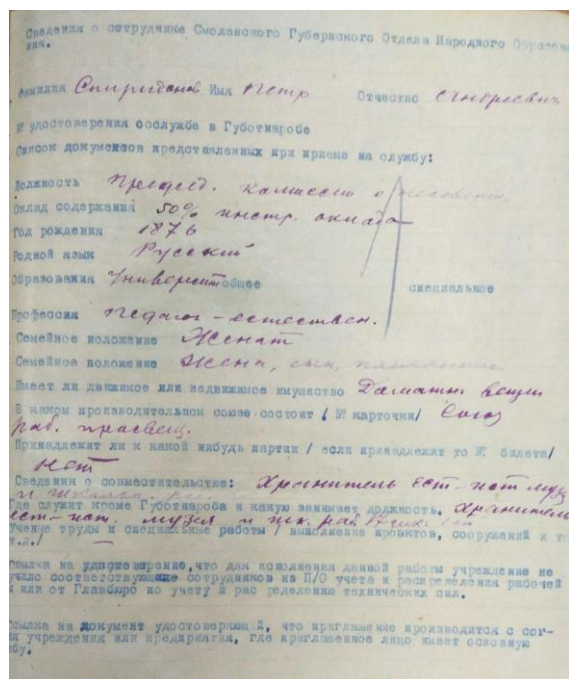 Сведения о сотруднике Смоленского Губернского Отдела Народного Образова
ния.
Фамилия Спиридонов Имя Петр Отчество Андреевич
№ удостоверения сослужба в Губотнаробе
Список документов представленных при приеме на службу:
Должность Председ. комиссии о
Оклад содержания 50% инстр. оклада
Год рождения 1876
Родной язык Русский
Образования Университ общее специальное
Профессия педагог - естествен.
Семейное положение Женат
Семейное положение Жена, сын, племянник
Имеет ли движимое или недвижимое имущество Домашн вещи
В каком производительном союзе состоит / № карточки/ Союз
раб. просвещ.
Принадлежит ли к какой нибудь партии / если принадлежит то № билета/
нет
Сведения о совместительстве: Хранитель ест-ист муз
и школьн. раб.
Где служит кроме Губотнароба и какую занимает должность, Хранитель
ест-ист. музея и шк. раб
Ученые труды и специальные работы / выполнение проэктов, сооружений и то
т.д./ —
ссылка на удостоверение, что для исполнения данной работы учреждение не
учило соответствующие сотрудников из П/О учета и распределения рабочей
и или от Главбюро по учету и рас ределению технических сил.
ссылка на документ удостоверяющий, что приглашение производится с сог-
ия учреждения или предприятия, где приглашенное лицо имеет основную
бу.